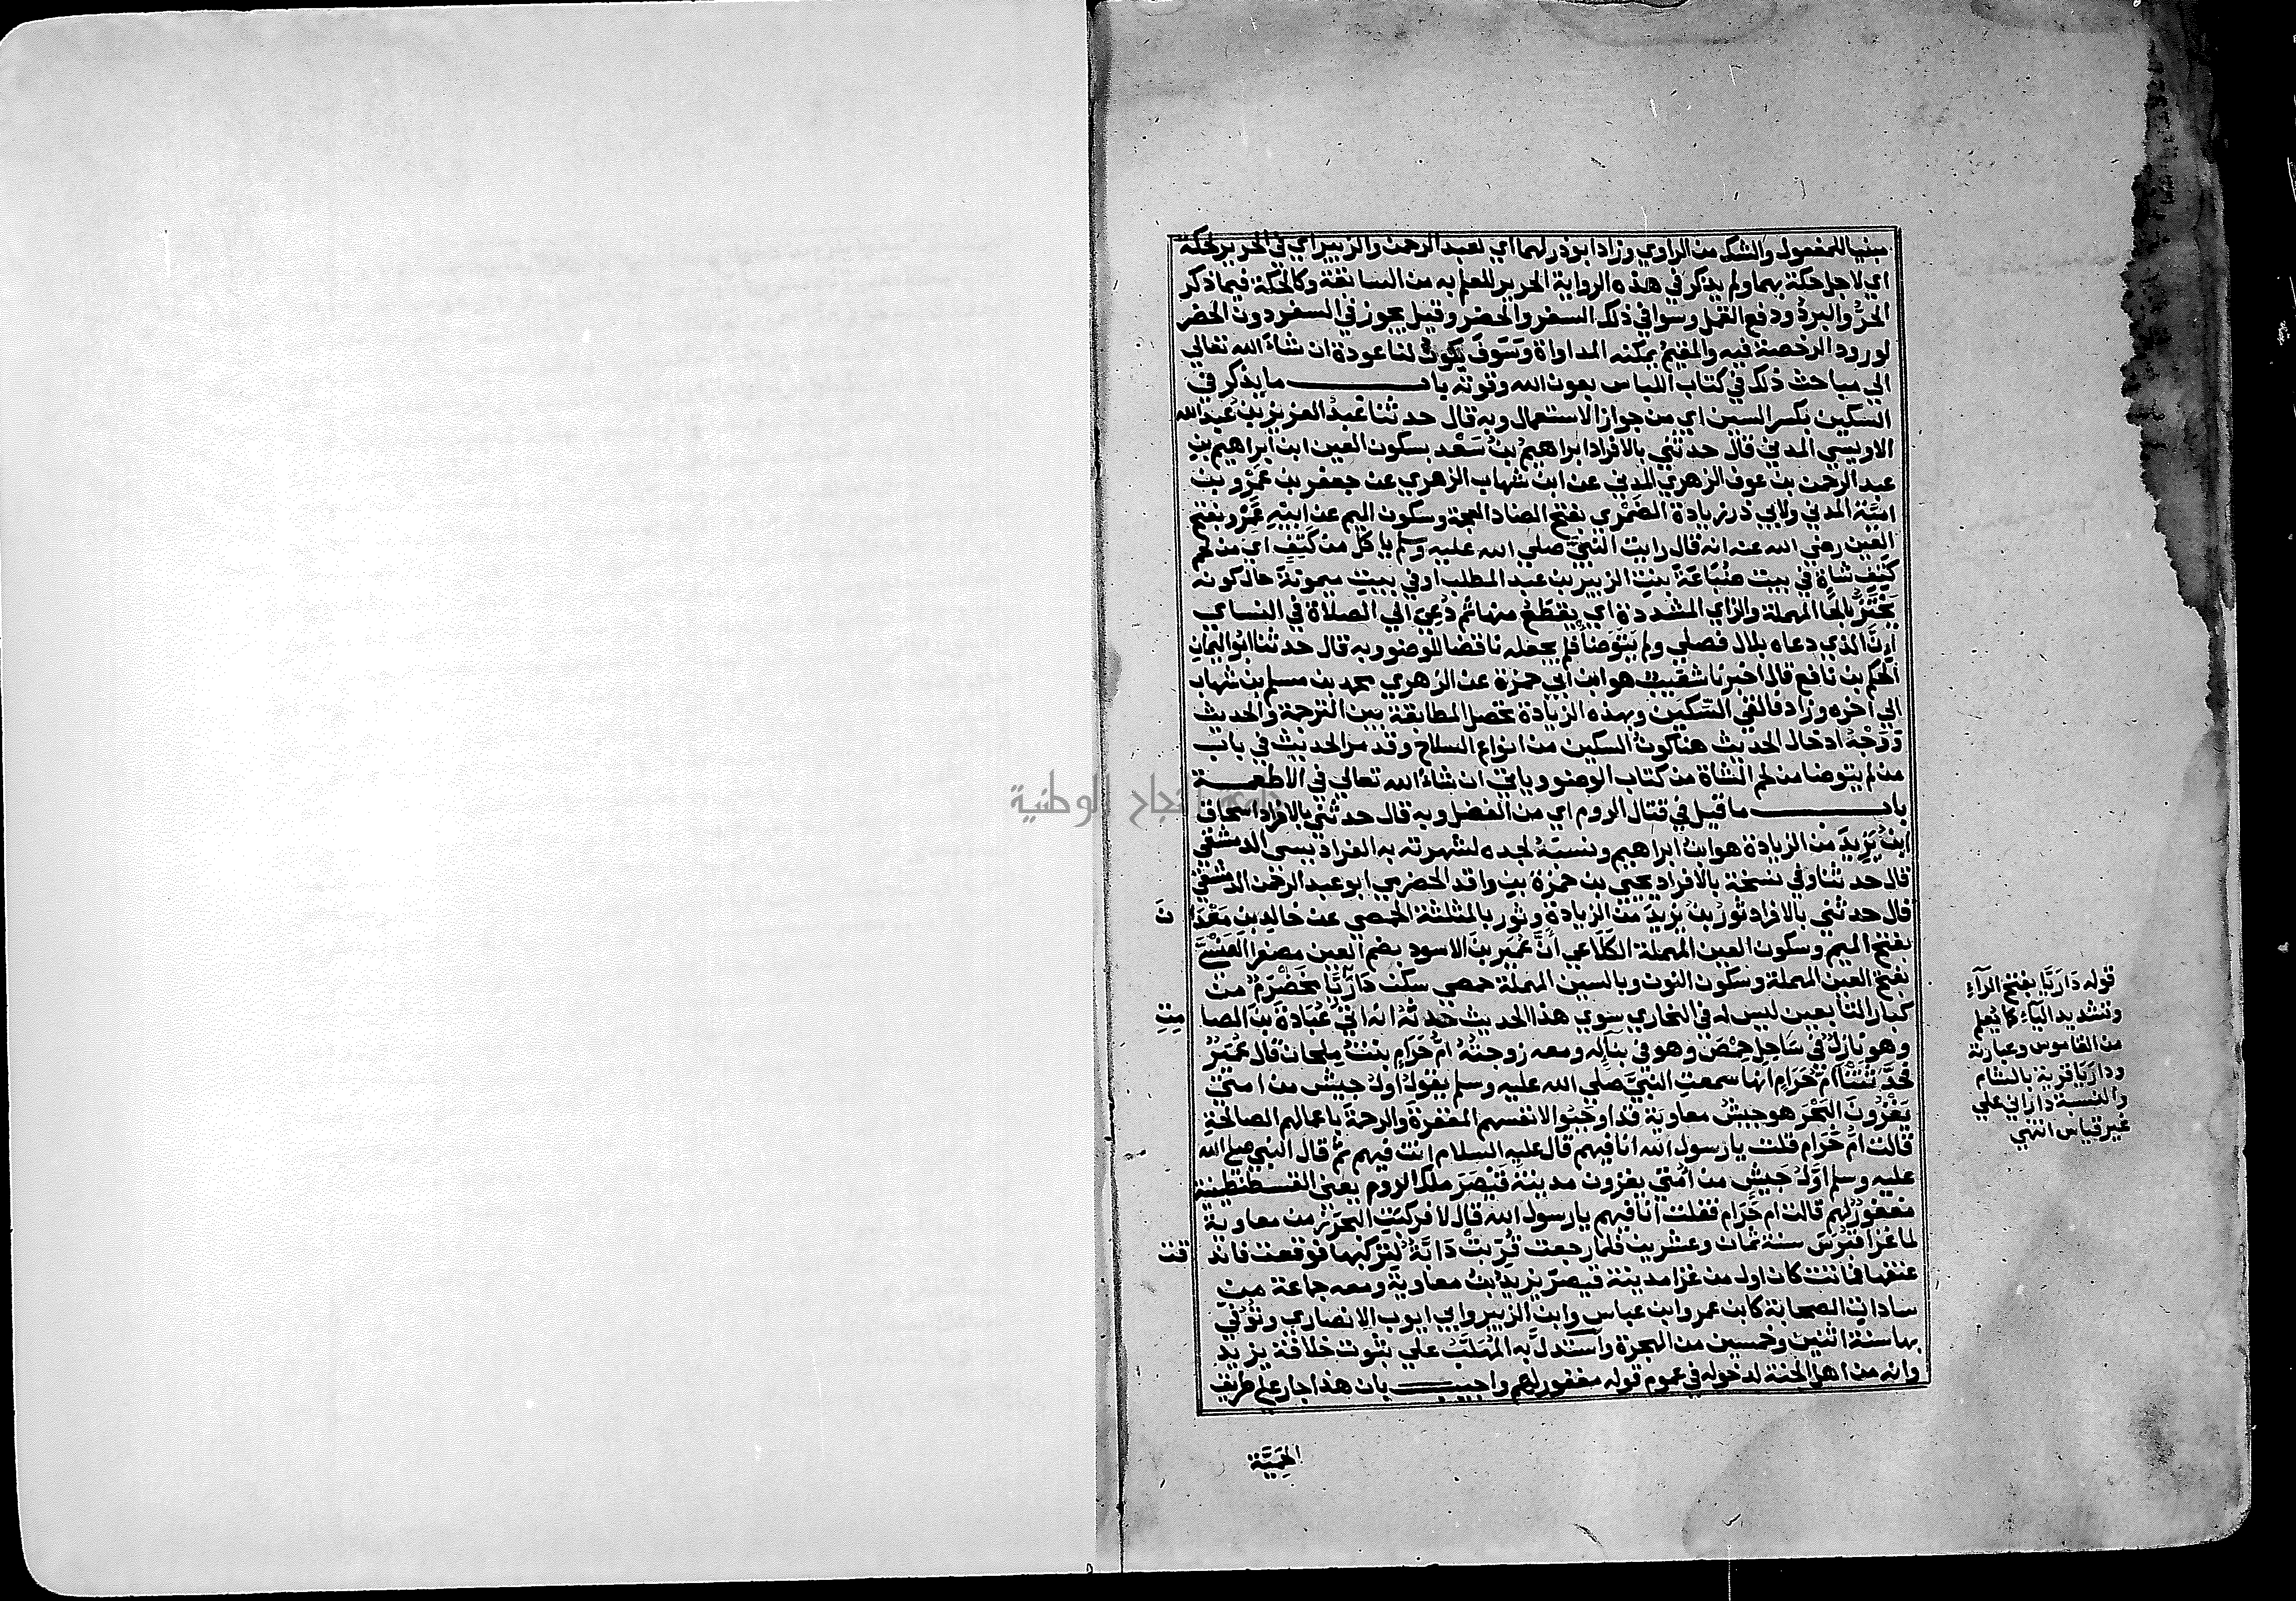 مبنيا للمفعول والشك من الراوي وزاد ابو ذر لهما اي لعبد الرحمن والزبير اي في الحرير لحكة
اي لاجل حكة بهما ولم يذكر في هذه الرواية الحرير للعلم به من السابقة وكالحكة فيما ذكر
الحرُّ والبردُ ودفع القمل وسوا في ذلك السفر والحضر وقيل يجوز في السفر دون الحضر
لورود الرخصة فيه والمقيمُ يمكنه المداواة وسَوفَ يكونُ لنا عودة ان شاءَ الله تعالي
الي مباحث ذلك في كتاب اللباس بعون الله وقوته باب ما يذكر في
السكين بكسر السين اي من جواز الاستعمال وبه قال حدثنا عبدُ العزيز بنُ عبد الله
الاويسي المدني قال حدثني بالافراد ابراهيمُ بنُ سَعْد بسكون العين ابن ابراهيم بنِ
عبد الرحمن بن عوف الزهري المدني عن ابن شهاب الزهري عن جعفر بن عمرو بن
اميَّة المدني ولابي ذر زيادة الضَمْري بفتح الضاد المعجمة وسكون الميم عن ابيه عَمْرو بفتح
العين رضي الله عنه انه قال رايت النبيَّ صلي الله عليه وسلم ياكل من كَتِفِ اي من لحم
كَتِفِ شاةٍ في بيت ضُبَاعَةَ بنتِ الزبير بن عبد المطلب او في بيتِ ميمونةَ حال كونه
يَحْتَزُّ بالحا المهملة والزاي المشددة اي يقطَعُ منها ثم دُعِيَ الي الصلاة في النساي
اِنَّ الذي دعاه بلال فصلي ولم يتوضأْ فلم يجعله ناقضا للوضو وبه قال حدثنا ابُو اليمانِ
الحكم بن نافع قال اخبرنا شعيبٌ هو ابن ابي حمزة عن الزهري محمد بن مسلم بن شهاب
الي اخره وزاد فالقي السّكين وبهذه الزيادة تحصل المطابقة بين الترجمة والحديث
وَوَجْهُ ادخال الحديث هنا كونُ السكين من انواع السلاح وقد مر الحديث في باب
من لم يتوضا من لحم الشاة من كتاب الوضو وياتي ان شاءَ الله تعالي في الاطعمة
باب ما قيل في قتال الروم اي من الفضل وبه قال حدثني بالافراد اسحاق
ابنُ يَزِيدَ من الزيادة هو ابنُ ابراهيم ونسبَهُ لجده لشهرته به الفراديسي الدمشقي
قال حدثنا وفي نسخة بالافراد يحيي بن حمزة بن واقد الحضرمي ابو عبد الرحمن الدمشقي
قال حدثني بالافراد ثَوْرُ بنُ يَزيدَ من الزيادة وثور بالمثلثة الحمصي عن خالِدِ بنِ مَعْدَا نَ
بفتح الميم وسكون العين المهملة الكَلَاعي أنَّ عُمَيرَ بنَ الاسود بضم العين مصغرا العَنْسيَّ
بفتح العين المهملة وسكون النون وبالسين المهملة حمصي سكن دَاريَّا مُخَضْرَمٌ من
كبار التابعين ليس له في البخاري سوي هذا الحديث حدثَهُ انه اتي عُبادَةَ بنَ الصا مِتِ
وهو نازلٌ في سَاحِلِ حِمْصَ وهو في بناءٍ له ومعه زوجتُهُ امُّ حَرَامٍ بنتُ مِلحان قال عُمَيْرٌ
فحَدَّثَتْنَا امُّ حَرَامِ انها سمعتِ النبيَّ صَلي الله عليه وسلم يقولُ أولُ جيش من امتي
يَغْزُونَ البَحْرَ هو جيشُ معاوية قد اوجَبُوا لانفسهم المغفرةَ والرحمةَ باعمالهم الصالحةِ
قالت امُّ حَرَامٍ قلت يا رسول الله انا فيهم قال عليه السلام انتِ فيهم ثمَّ قال النبي صلي الله
عليه وسلم أوَّلُ جَيشٍ من أُمَّتي يغزون مدينةَ قَيْصَرَ ملك الروم يعني القسطنطينية
مغفورٌ لهم قالت ام حَرَام فقلت أنا فيهم يا رسول الله قال لا فركبَتِ البحرَ زمن معاوية
لما غزا قبْرُسَ سنة ثمان وعشرين فلما رجعت قُرِّبَتْ دَابَّةٌ لتركبها فوقعت فاند قت
عنقها فماتت كان اول من غزا مدينةَ قيصرَ يزيدُ بنُ معاويةَ ومعه جماعة من
سادات الصحابة كابن عمر وابن عباس وابن الزبير وابي ايوب الانصاري وتُوُفّي
بها سنة اثنين وخمسين من الهجرة واستدلَّ به المُهَلَّبُ علي ثبوت خلافة يزيد
وانه من اهل الجنة لدخوله في عموم قوله مغفور لهم واجيب بان هذا جار علي طريق
الحَمِيَّة
قوله دَاريَّا بفتح الرآءِ
وتشديد اليآءِ كما يُعلم
من القاموس وعبارته
وداريّا قرية بالشام
والنسبة داراني علي
غير قياس انتهي
جامعة النجاح الوطنية